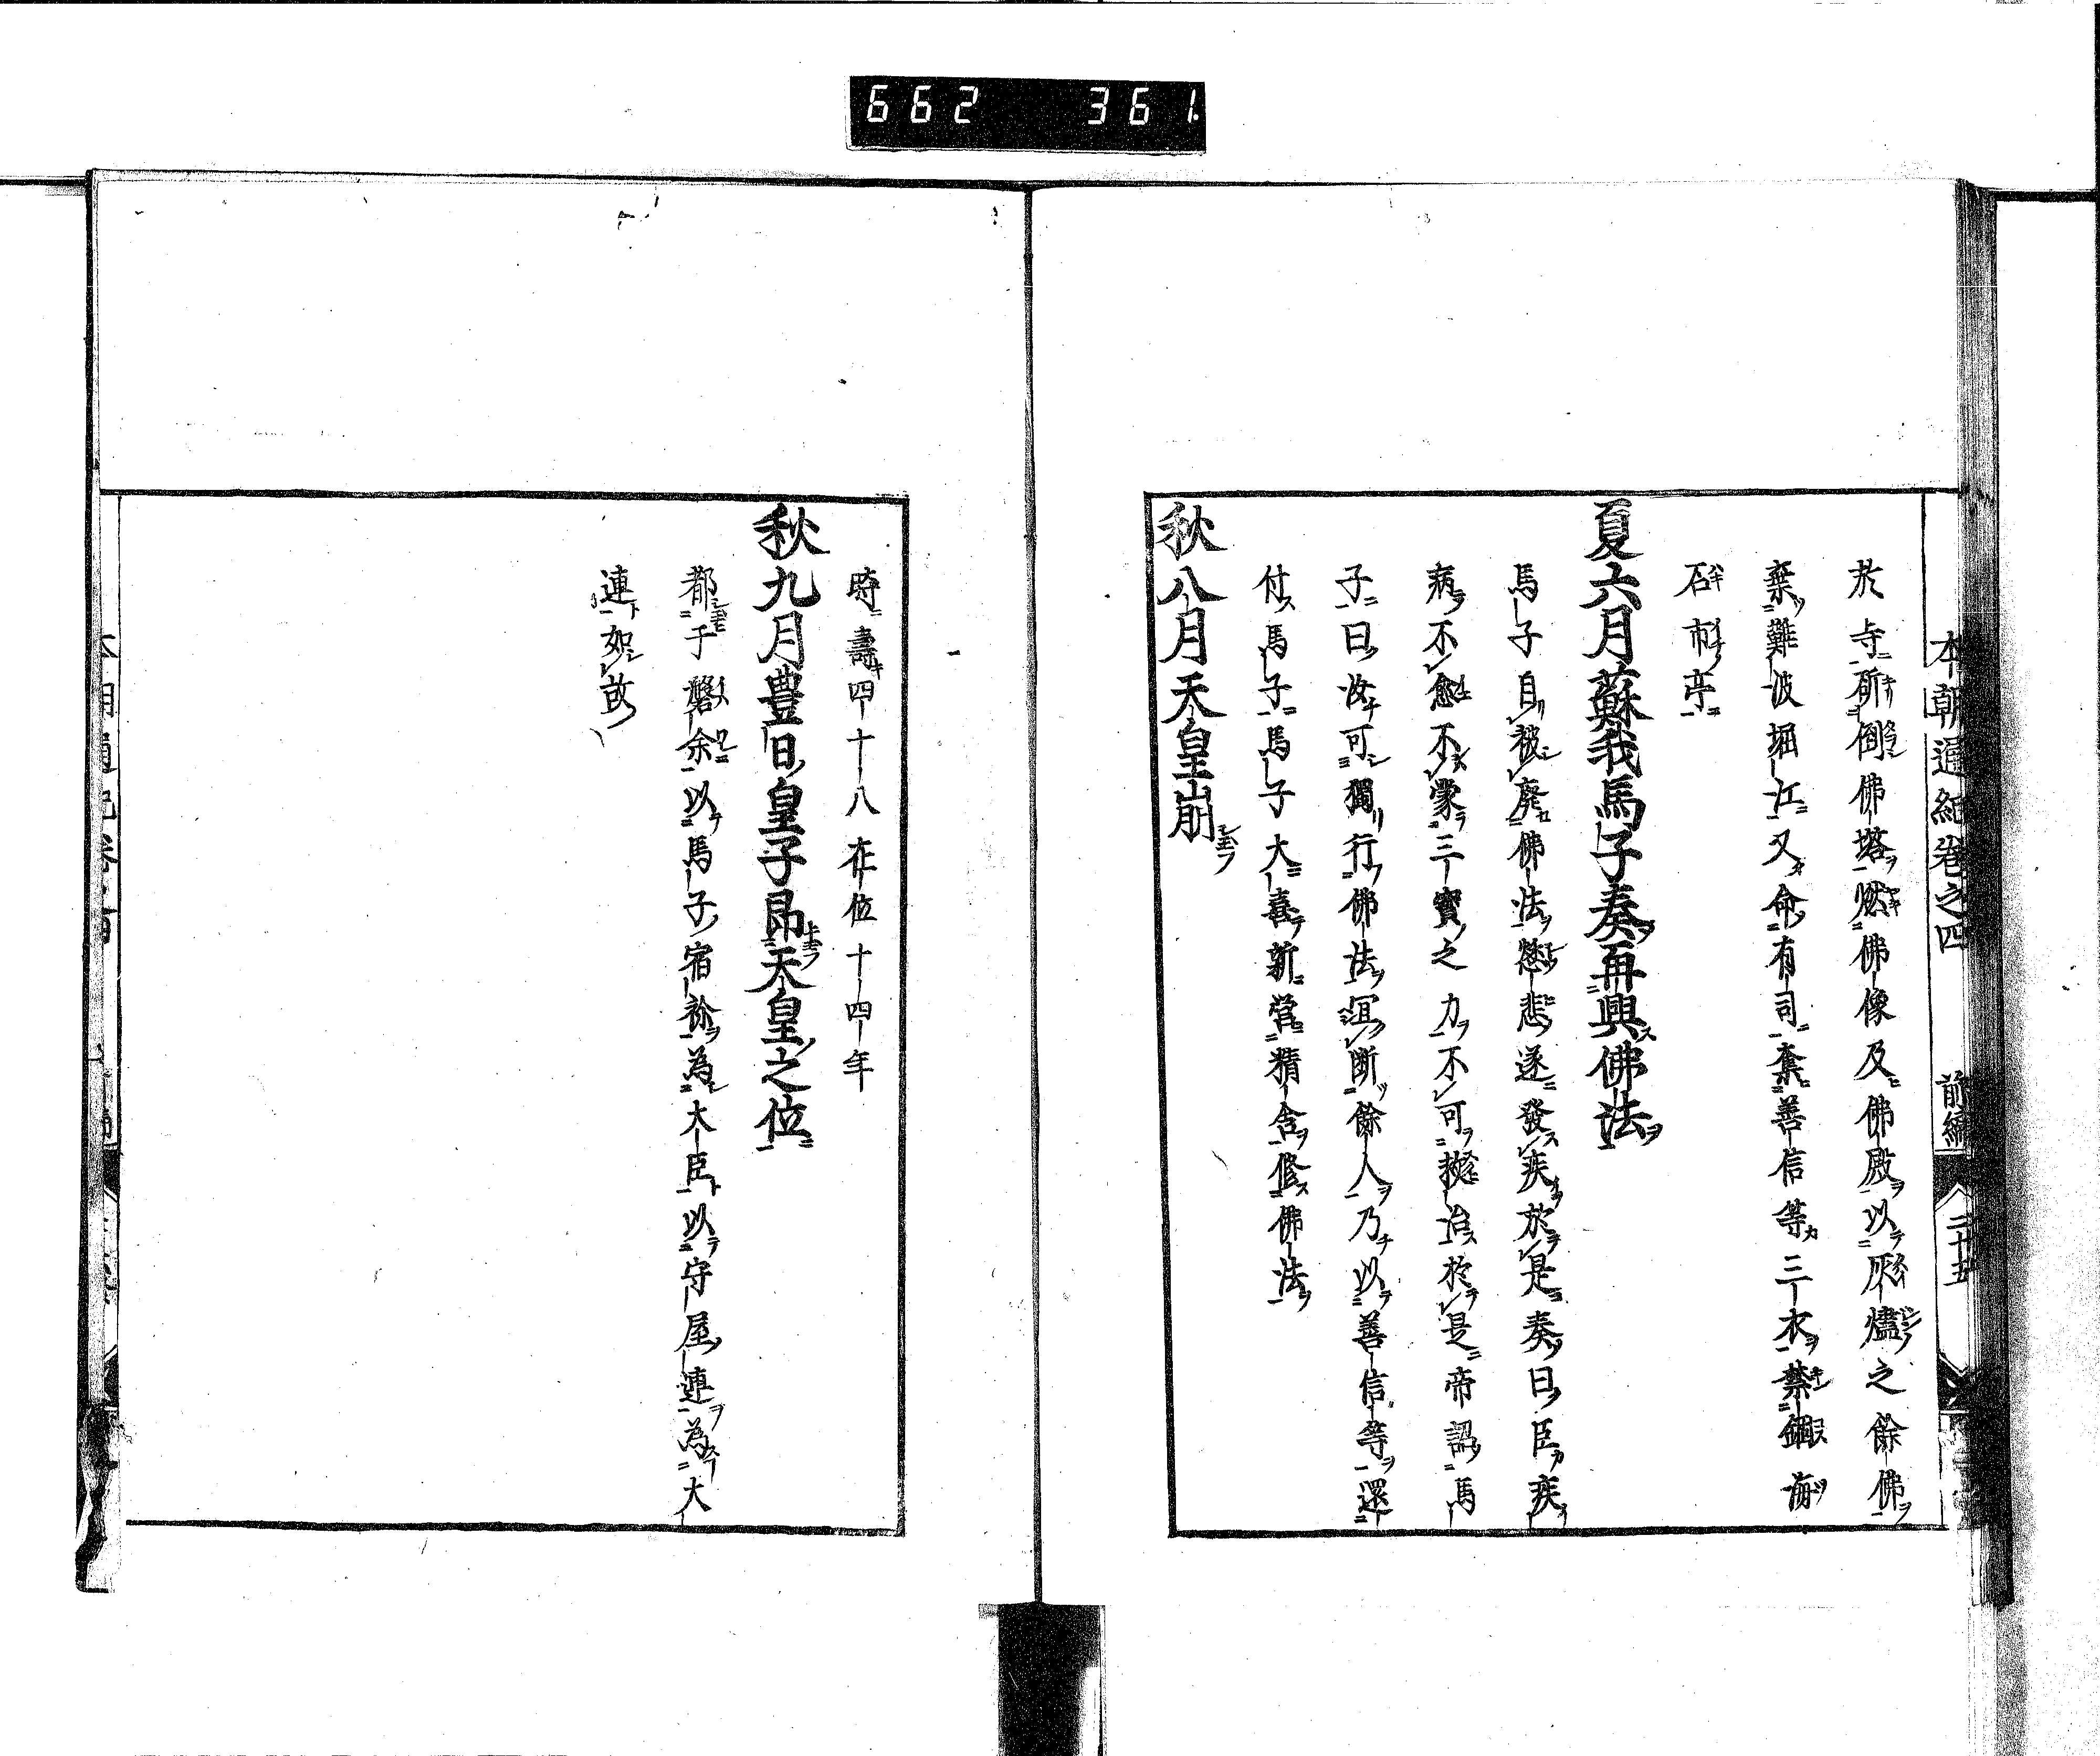 662 361
本朝通紀卷之四 前編 二十五
於寺斫倒佛塔燃佛像及佛殿以灰燼之餘佛
棄難波堀江又命有司奪善信等三衣禁錮海
石市亭
夏六月蘇我馬子奏再興佛法
馬子自被廢佛法愁悲遂發疾於是奏曰臣疾
病不愈不蒙三寶之力不可救治於是帝詔馬
子曰汝可獨行佛法宜断餘人乃以善信等還
付馬子馬子大喜新営精舎修佛法
秋八月天皇崩
時壽四十八在位十四年
秋九月豊日皇子即天皇之位
都于磐余以馬子宿祢為大臣以守屋連為大
連如故